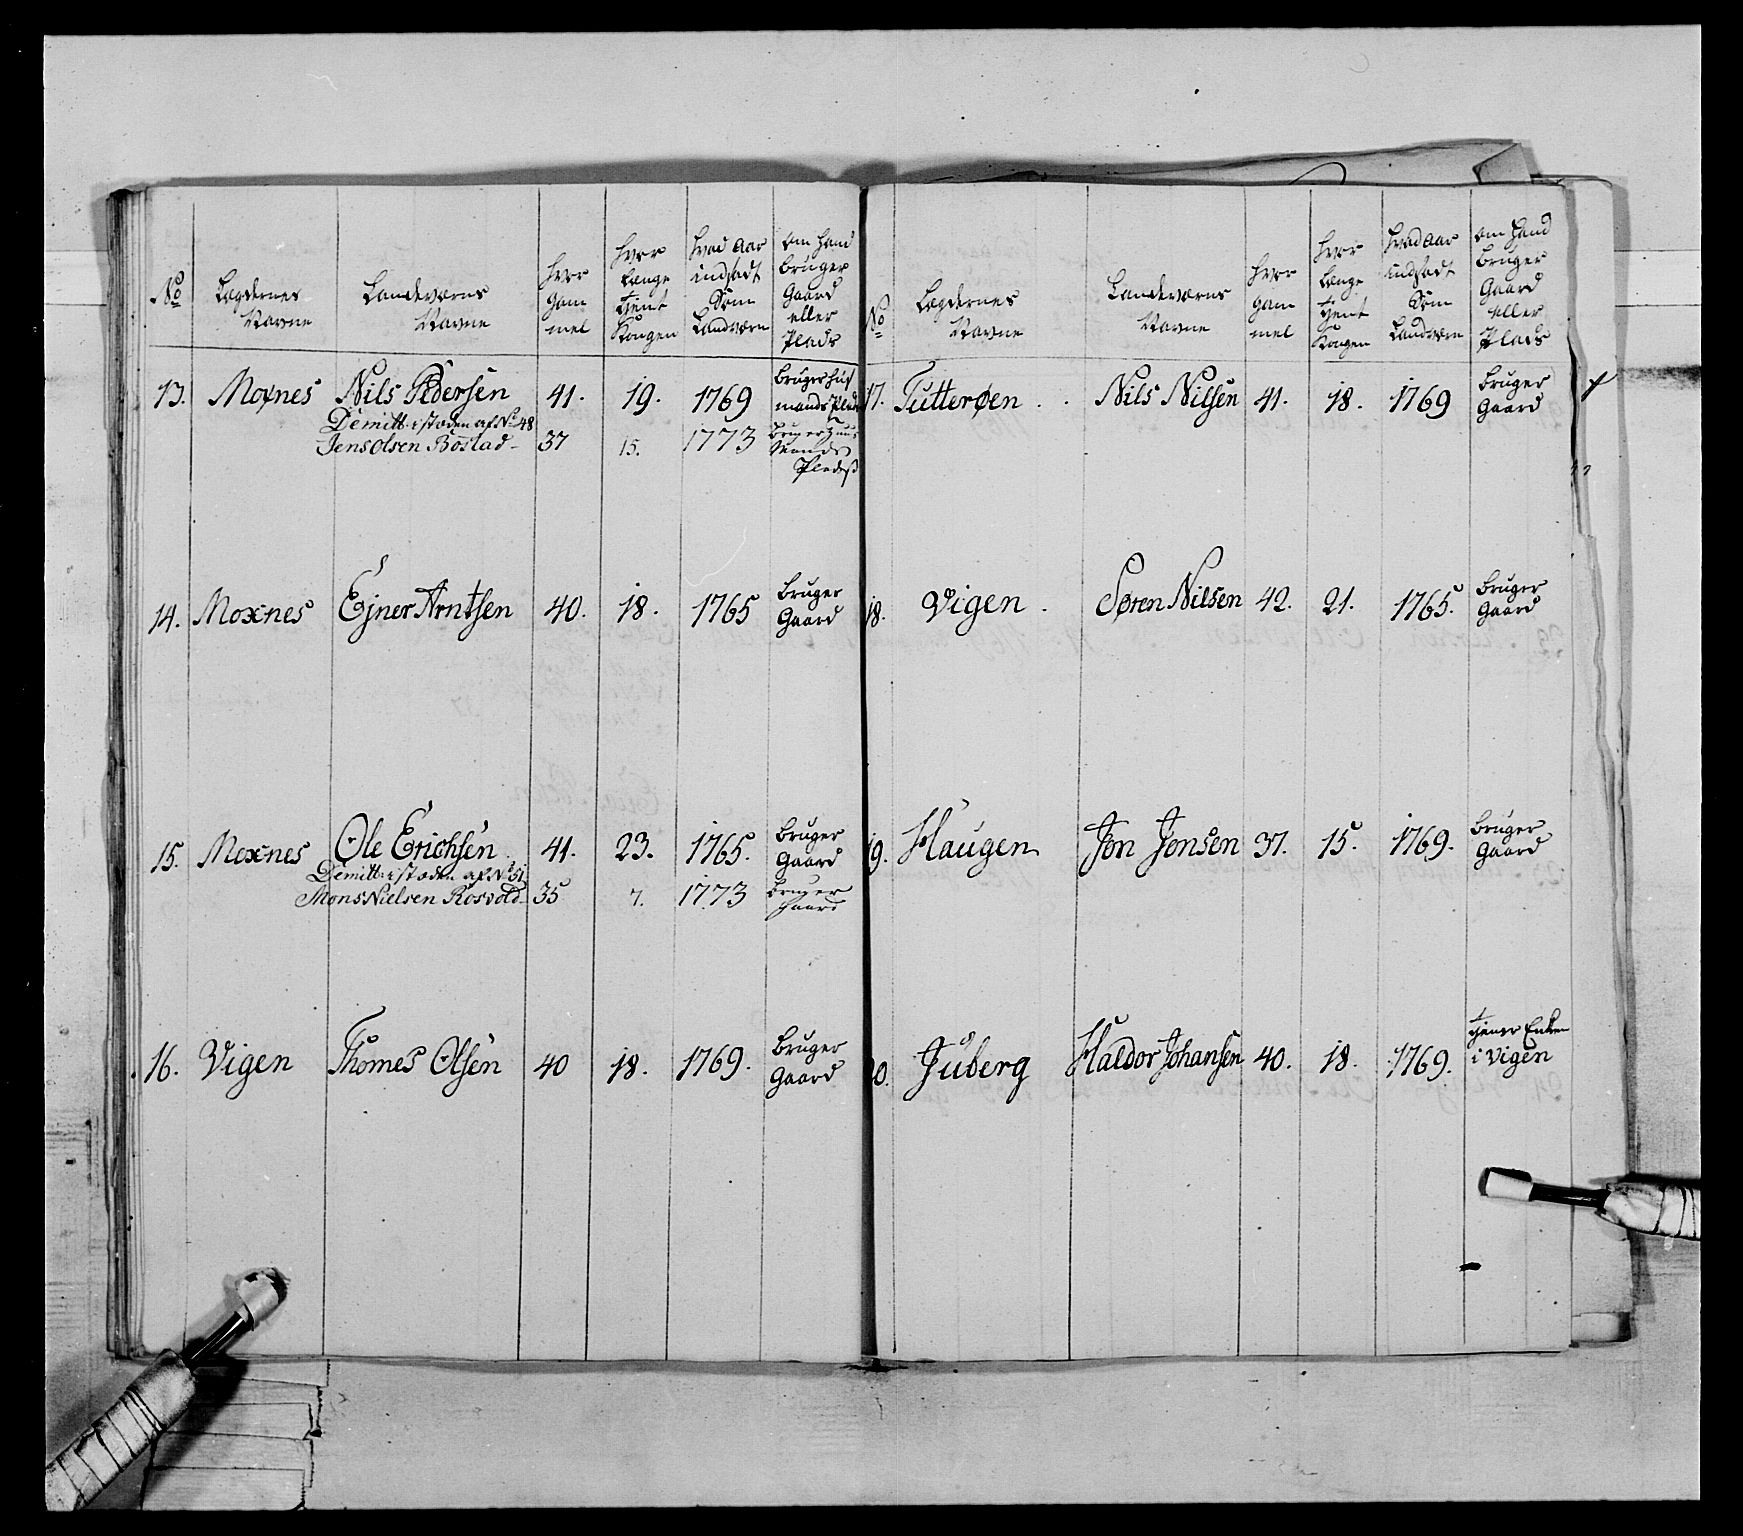 No Lægdernes Navne Landeværns Navne hvor gammel hvor Længe tient Kongen hvad Aar indsadt Som Landværn om hand bruger Gaard eller Plads
13. Moxnes Nils Pedersen 41. 19. 1769 bruger huusmands Plads
Demitt: i stæden af No 48
Jens Olsen Bostad 37 15. 1773 bruger Huusmands Pladsz
14. Moxnes Ejner Arntsen 40. 18. 1765 bruger Gaard
15. Moxnes Ole Erichsen 41. 23. 1765. bruger Gaard
Demitt: i stæden af No 51
Mons Nielsen Rosvold 35 7. 1773 bruger Gaard
16. Vigen Thomes Olsen 40 18. 1769. bruger Gaard
No Lægdernes Navne Landeværns Navne hvor gammel hvor Længe tient Kongen hvad Aar indsadt Som Landværn om hand bruger Gaard eller Plads
17. Tutterøen Nils Nilsen 41. 18. 1769 bruger Gaard
18. Vigen Søren Nilsen 42. 21. 1765. bruger Gaard
19. Haugen Jon Jonsen 37. 15. 1769. bruger Gaard
20. Juberg Haldor Johansen 40. 18. 1769. tjener Enken i Vigen